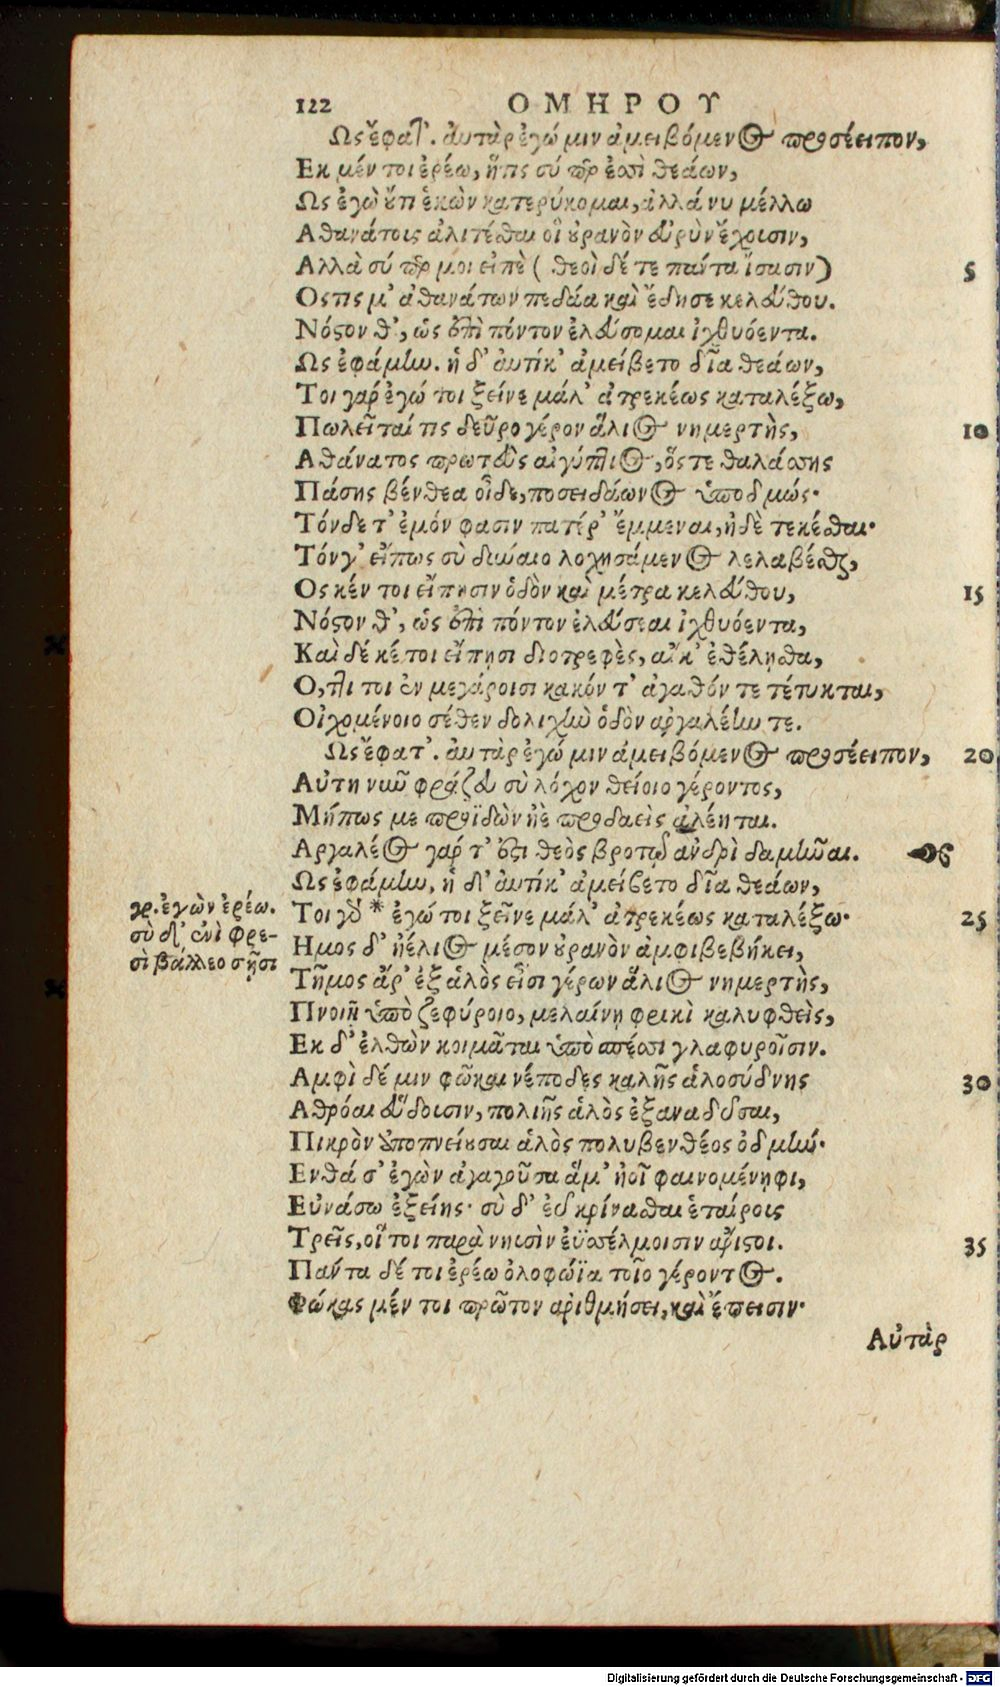 122 ΟΜΗΡΟΥ
Ως ἔφατ'. αὐτὰρ ἐγώ μιν ἀμειβόμενος προσέειπον,
Εκ μέν τοι ἐρέω, ἥτις σύ περ ἐσσὶ θεάων,
Ως ἐγὼ οὔτι ἑκὼν κατερύκομαι, ἀλλά νυ μέλλω
Αθανάτοις ἀλιτέσθαι οἳ οὐρανὸν εὐρὺν ἔχουσιν,
Αλλὰ σύ περ μοι εἰπὲ ( θεοὶ δέ τε πάντα ἴσασιν) 5
Οςτις μ' ἀθανάτων πεδάα καὶ ἔδησε κελεύθου.
Νόστον θ', ὡς ἐπὶ πόντον ἐλεύσομαι ἰχθυόεντα.
Ως ἐφάμην. ἡ δ' αὐτίκ' ἀμείβετο δῖα θεάων,
Τοι γάρ ἐγώ τοι ξεῖνε μάλ' ἀτρεκέως καταλέξω,
Πωλεῖταί τις δεῦρο γέρον ἅλιος νημερτὴς, 10
Αθάνατος πρωτεὺς αἰγύπτιος, ὅς τε θαλάσσης
Πάσης βένθεα οἶδε, ποσειδάωνος ὑποδμώς·
Τόνδε τ' ἐμόν φασιν πατέρ' ἔμμεναι, ἠδὲ τεκέσθαι·
Τόν γ' εἴπως σὺ δύναιο λοχησάμενος λελαβέσθαι,
Ος κέν τοι εἴπησιν ὁδὸν καὶ μέτρα κελεύθου, 15
Νόστον θ', ὡς ἐπὶ πόντον ἐλεύσεαι ἰχθυόεντα,
Καὶ δέ κέ τοι εἴπησι διοτρεφὲς, αἴκ' ἐθέλησθα,
Ο,ττι τοι ἐν μεγάροισι κακόν τ' ἀγαθόν τε τέτυκται,
Οἰχομένοιο σέθεν δολιχὴν ὁδὸν ἀργαλέην τε.
Ως ἔφατ'. αὐτὰρ ἐγώ μιν ἀμειβόμενος προσέειπον, 20
Αὐτὴ νῦν φράζευ σὺ λόχον θείοιο γέροντος,
Μήπως με προϊδὼν ἠὲ προδαεὶς ἀλέηται.
Αργαλέος γάρ τ' ἐστὶ θεὸς βροτῷ ἀνδρὶ δαμῆναι.
Ως ἐφάμην, ἡ δ' αὐτίκ' ἀμείβετο δῖα θεάων,
Τοι γὰρ * ἐγώ τοι ξεῖνε μάλ' ἀτρεκέως καταλέξω· 25
γρ. ἐγὼν ἐρέω.
σὺ δ' ἐνὶ φρε-
σὶ βάλλεο σῇσι
Ημος δ' ἠέλιος μέσον οὐρανὸν ἀμφιβεβήκει,
Τῆμος ἄρ' ἐξ ἁλὸς εἶσι γέρων ἅλιος νημερτὴς,
Πνοιῇ ὑπὸ ζεφύροιο, μελαίνη φρικὶ καλυφθεὶς,
Εκ δ' ἐλθὼν κοιμᾶται ὑπὸ σπέσσι γλαφυροῖσιν.
Αμφὶ δέ μιν φῶκαι νέποδες καλῆς ἁλοσύδνης 30
Αθρόαι εὕδουσιν, πολιῆς ἁλὸς ἐξαναδῦσαι,
Πικρὸν ἀποπνείουσαι ἁλὸς πολυβενθέος ὀδμήν·
Ενθά σ' ἐγὼν ἀγαγοῦσα ἅμ' ἠοῖ φαινομένηφι,
Εὐνάσω ἑξείης· σὺ δ' ἐὺ κρίνασθαι ἑταίρους
Τρεῖς, οἵ τοι παρὰ νηυσὶν ἐϋσσέλμοισιν ἄριστοι. 35
Πάντα δέ τοι ἐρέω ὀλοφώϊα τοῖο γέροντος.
Φώκας μέν τοι πρῶτον ἀριθμήσει, καὶ ἔπεισιν·
Αὐτὰρ
Digitalisierung gefördert durch die Deutsche Forschungsgemeinschaft - DFG